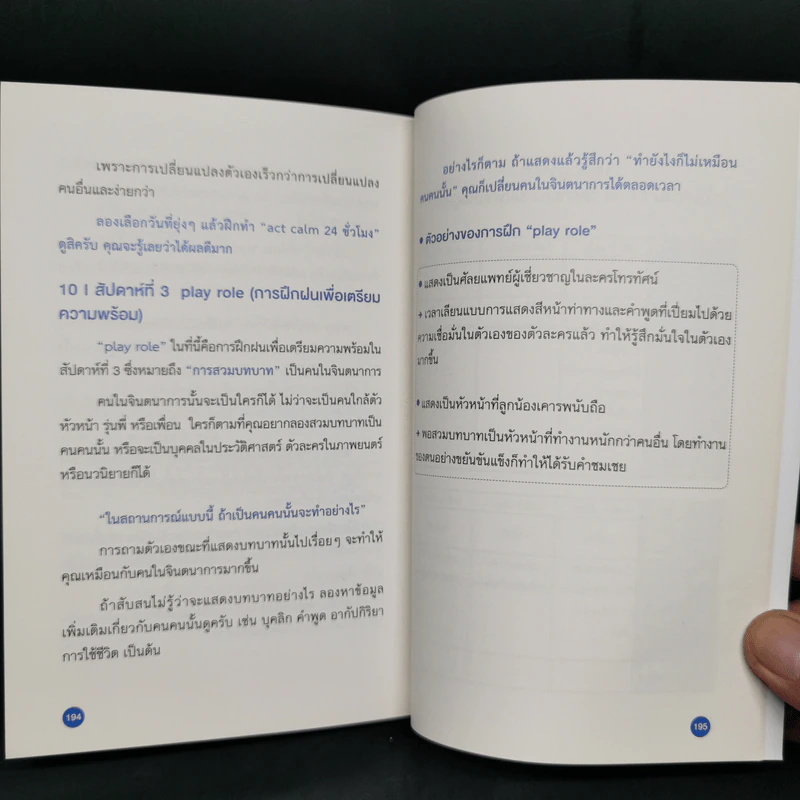 เพราะการเปลี่ยนแปลงตัวเองเร็วกว่าการเปลี่ยนแปลง
คนอื่นและง่ายกว่า
ลองเลือกวันที่ยุ่งๆ แล้วฝึกทำ “act calm 24 ชั่วโมง”
ดูสิครับ คุณจะรู้เลยว่าได้ผลดีมาก
10 | สัปดาห์ที่ 3 play role (การฝึกฝนเพื่อเตรียม
ความพร้อม)
“play role” ในที่นี้คือการฝึกฝนเพื่อเตรียมความพร้อมใน
สัปดาห์ที่ 3 ซึ่งหมายถึง “การสวมบทบาท” เป็นคนในจินตนาการ
คนในจินตนาการนั้นจะเป็นใครก็ได้ ไม่ว่าจะเป็นคนใกล้ตัว
หัวหน้า รุ่นพี่ หรือเพื่อน ใครก็ตามที่คุณอยากลองสวมบทบาทเป็น
คนคนนั้น หรือจะเป็นบุคคลในประวัติศาสตร์ ตัวละครในภาพยนตร์
หรือนวนิยายก็ได้
“ในสถานการณ์แบบนี้ ถ้าเป็นคนคนนั้นจะทำอย่างไร”
การถามตัวเองขณะที่แสดงบทบาทนั้นไปเรื่อยๆ จะทำให้
คุณเหมือนกับคนในจินตนาการมากขึ้น
ถ้าสับสนไม่รู้ว่าจะแสดงบทบาทอย่างไร ลองหาข้อมูล
เพิ่มเติมเกี่ยวกับคนคนนั้นดูครับ เช่น บุคลิก คำพูด อากัปกิริยา
การใช้ชีวิต เป็นต้น
194
อย่างไรก็ตาม ถ้าแสดงแล้วรู้สึกว่า “ทำยังไงก็ไม่เหมือน
คนคนนั้น” คุณก็เปลี่ยนคนในจินตนาการได้ตลอดเวลา
• ตัวอย่างของการฝึก “play role”
• แสดงเป็นศัลยแพทย์ผู้เชี่ยวชาญในละครโทรทัศน์
+ เวลาเลียนแบบการแสดงสีหน้าท่าทางและคำพูดที่เปี่ยมไปด้วย
ความเชื่อมั่นในตัวเองของตัวละครแล้ว ทำให้รู้สึกมั่นใจในตัวเอง
มากขึ้น
• แสดงเป็นหัวหน้าที่ลูกน้องเคารพนับถือ
+ พอสวมบทบาทเป็นหัวหน้าที่ทำงานหนักกว่าคนอื่น โดยทำงาน
ของตนอย่างขยันขันแข็งก็ทำให้ได้รับคำชมเชย
195